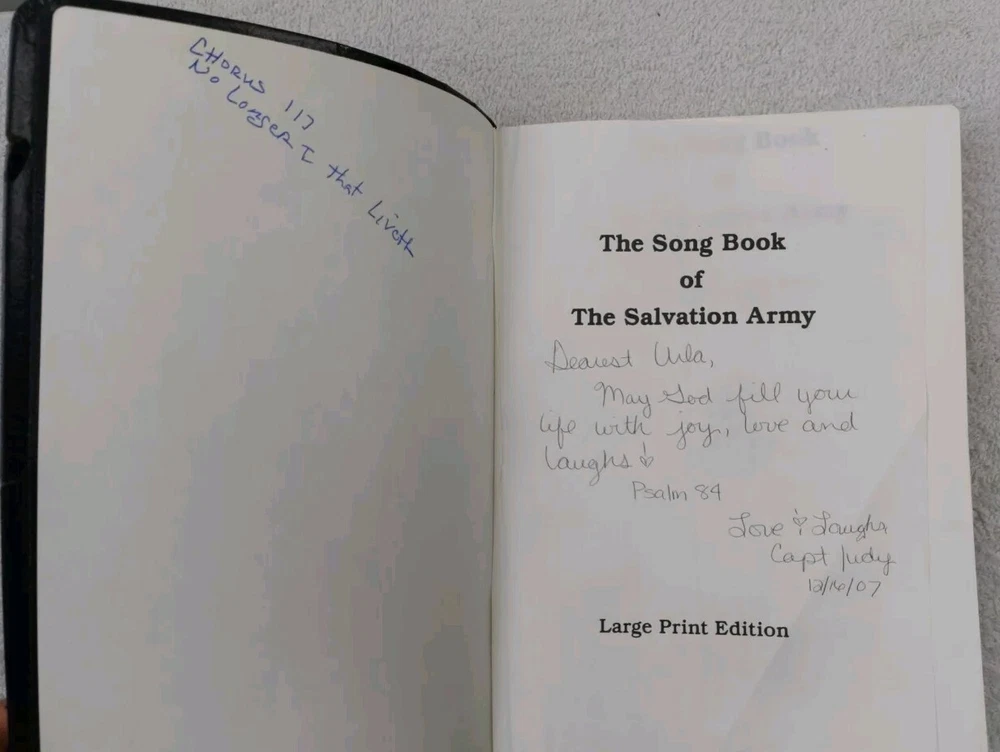 CHORUS 117
No LongER I that LivetH
The Song Book
of
The Salvation Army
Dearest Urla,
May God fill your
life with joy, love and
laughs!
Psalm 84
Love & Laughs
Capt Judy
12/16/07
Large Print Edition